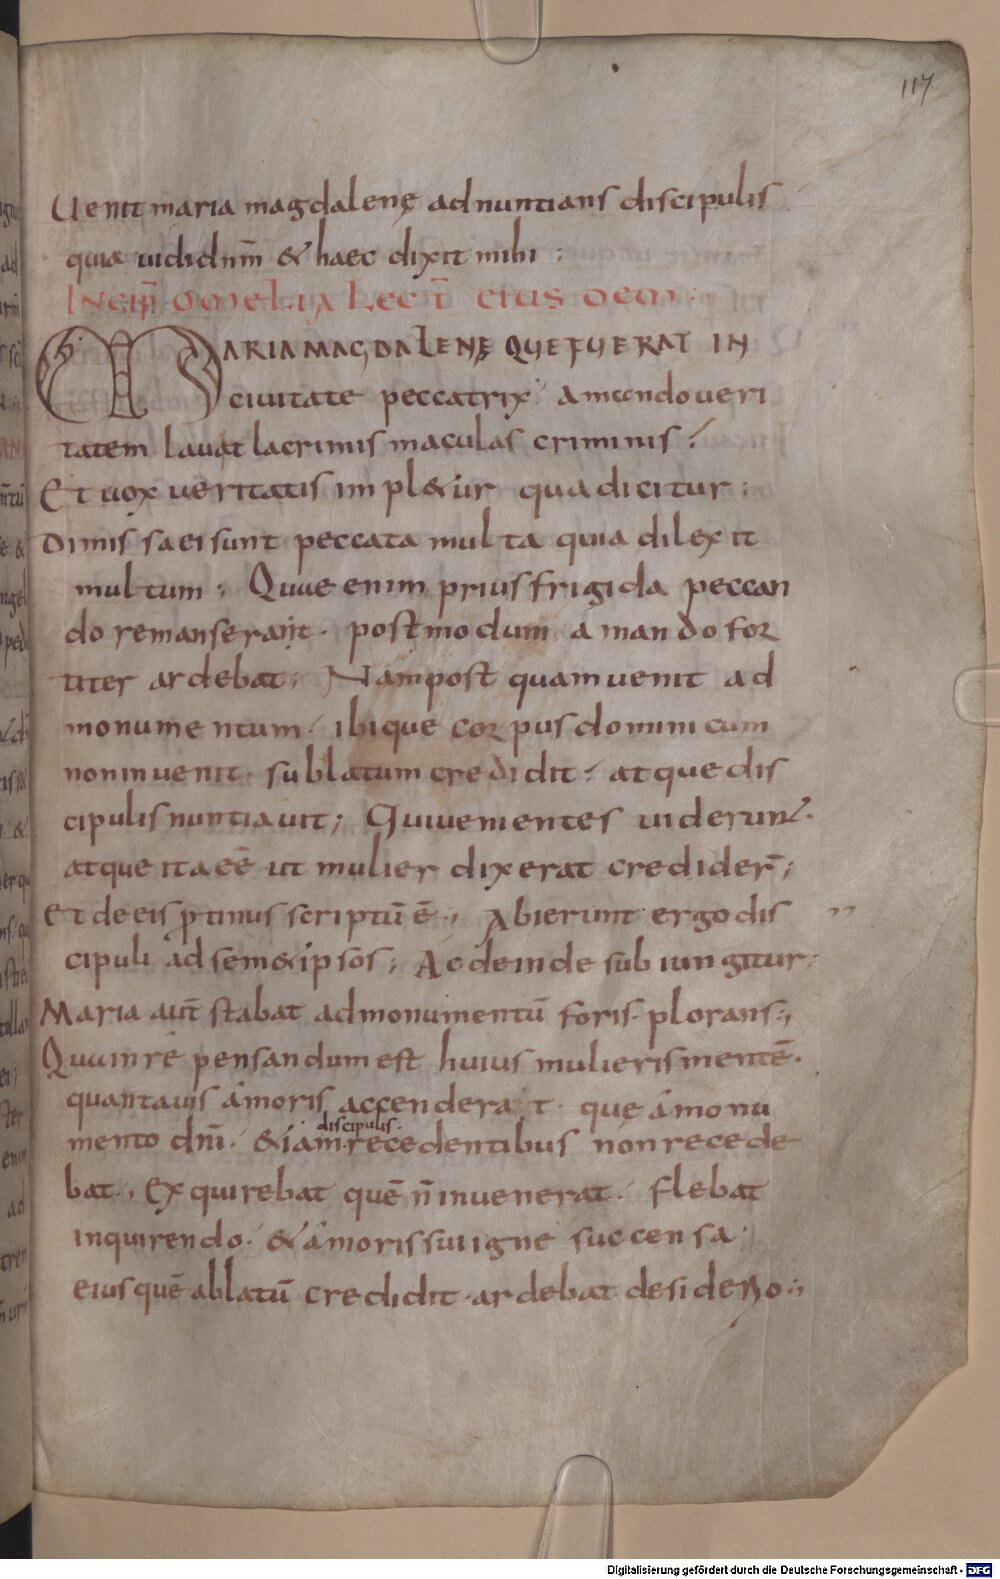 117
Uenit maria magdalenę adnuntians discipulis
quia uidi dnm̄ & haec dixit mihi ;
INCIP̄ OMELIA LECT̄ EIUSDEM ·
MARIA MAGDALENĘ QUE FUERAT IN
ciuitate peccatrix · amando ueri
tatem lauat lacrimis maculas criminis ·
Et uox ueritatis impl&ur qua dicitur ;
Dimissa ei sunt peccata multa quia dilexit
multum ; Quae enim prius frigida peccan
do remanserant · postmodum amando for
titer ardebat ; Nam postquam uenit ad
monumentum · ibique corpus dominicum
non inuenit · sublatum credidit · atque dis
cipulis nuntiauit ; Qui uenientes uiderunt ·
atque ita eē ut mulier dixerat credider̄ ;
Et de eis protinus scriptū ē ; Abierunt ergo dis
cipuli ad sem&ipsos ; Ac deinde subiungitur ;
Maria aut̄ stabat ad monumentū foris plorans ;
Qua in re pensandum est huius mulieris mentē ·
quanta uis amoris accenderat · quę a monu
mento dnī · &iam recedentibus non recede
discipulis
bat ; Exquirebat quē n̄ inuenerat · flebat
inquirendo · & amoris sui igne succensa ·
eius quē ablatū credidit · ardebat desiderio ;
Digitalisierung gefördert durch die Deutsche Forschungsgemeinschaft - DFG